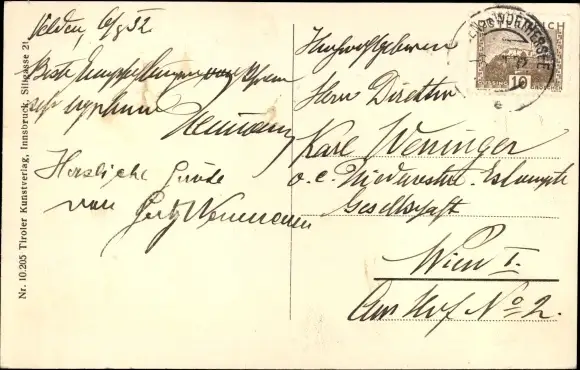 Velden, 6/8 32
Beste Empfehlungen von Ihrem
sehr ergebenen
Neumann
Herzliche Grüße
von Neumann
Hochwohlgeboren
Herrn Direktor
Karl Weninger
o. c. Niederöstr. Eskompte
Gesellschaft
Wien I.
Am Hof No 2.
Nr. 10.205 Tiroler Kunstverlag, Innsbruck, Sillgasse 21
10